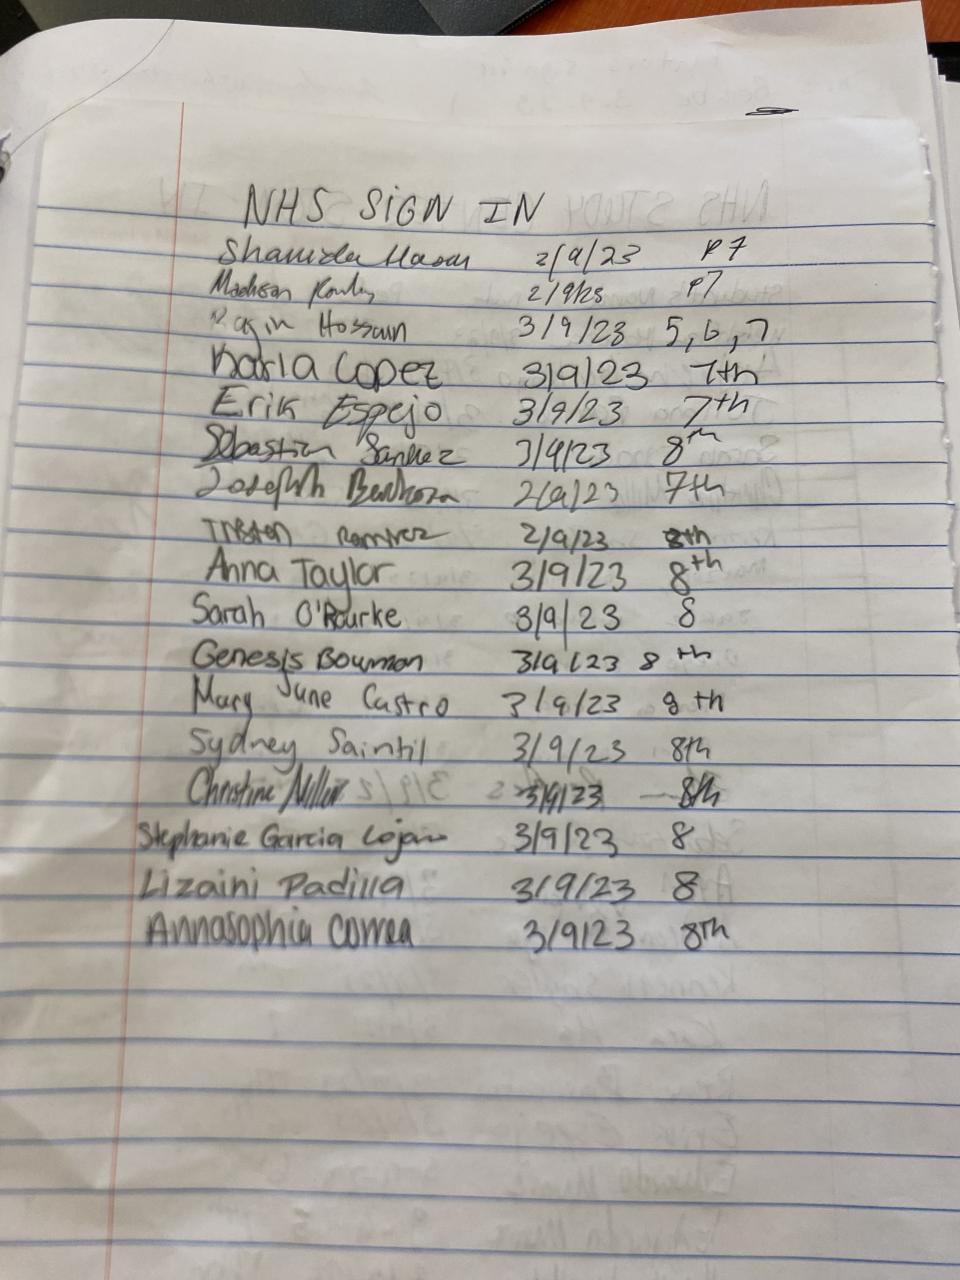 NHS SIGN IN
2/9/23 P7
Madison 2/9/23 P7
Hossain 3/9/23 5,6,7
Karla Lopez 3/9/23 7th
Erik Espejo 3/9/23 7th
Sebastian Sanchez 3/9/23 8th
Joseph 2/9/23 7th
Tristen Ramirez 2/9/23 8th
Anna Taylor 3/9/23 8th
Sarah O'Rourke 3/9/23 8
Genesis Bouman 3/9/23 8th
Mary June Castro 3/9/23 8th
Sydney Saintil 3/9/23 8th
Christine Miller 3/9/23 8th
Stephanie Garcia Lojano 3/9/23 8
Lizaini Padilla 3/9/23 8
Annasophia Correa 3/9/23 8th